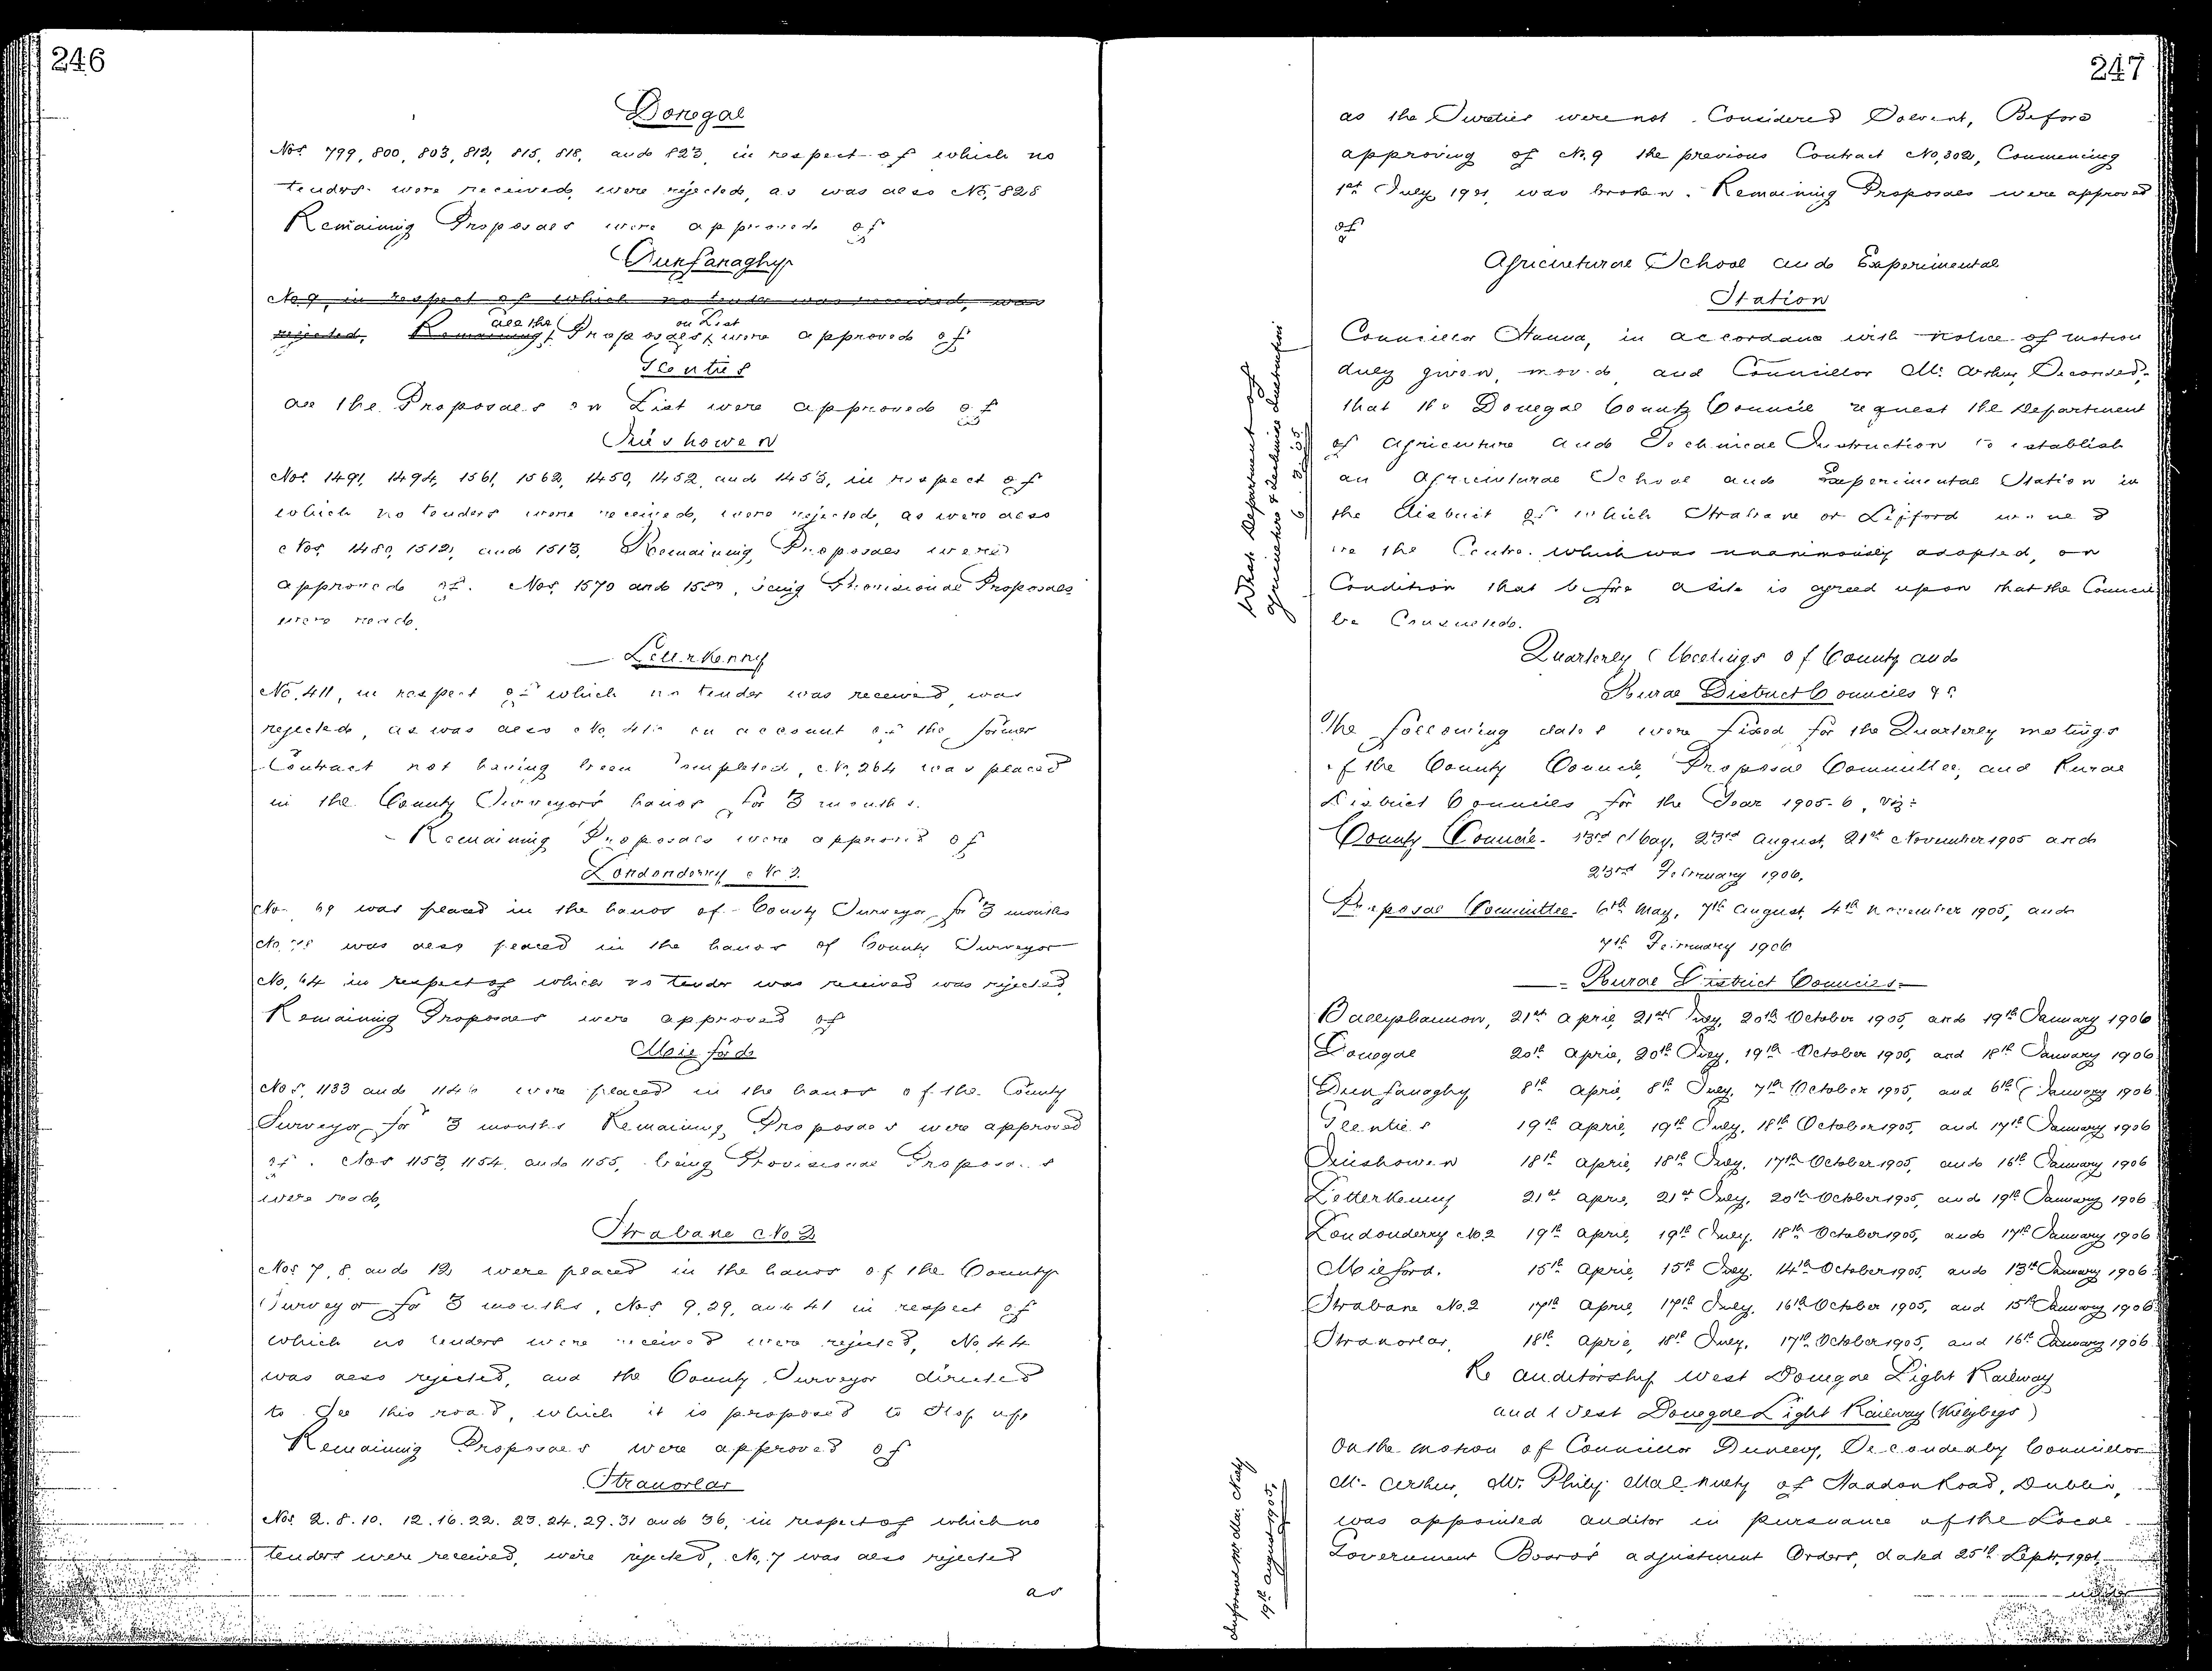 246
Donegal
Nos 799, 800, 803, 812, 815, 818, and 823, in respect of which no
tenders were received, were rejected, as was also No, 828
Remaining Proposals were approved of
Dunfanaghy
No 9, in respect of which no tender was received, was
rejected, Remaining all the Proposals on List were approved of
Glenties
All the Proposals on List were approved of
Inishowen
Nos 1491, 1494, 1561, 1562, 1450, 1452, and 1453, in respect of
which no tenders were received, were rejected, as were also
Nos 1480, 1512, and 1513, Remaining Proposals were
approved of. Nos, 1570 and 1580, being Provisional Proposals
were read.
Letterkenny
No. 411, in respect of which no tender was received was
rejected, as was also No, on account of the former
Contract not having been Completed, No, 264 was placed
in the County Surveyor's hands for 3 months.
Remaining Proposals were approved of
Londonderry No 2.
No 69 was placed in the hands of County Surveyor for 3 months
No. was also placed in the hands of County Surveyor
No, 64 in respect of which no tender was received was rejected
Remaining Proposals were approved of
Milford
Nos, 1133 and 1146 were placed in the hands of the County
Surveyor for 3 months Remaining Proposals were approved
of. Nos 1153, 1154, and 1155, being Provisional Proposals
were read,
Strabane No 2
Nos 7, 8, and 12, were placed in the hands of the County
Surveyor for 3 months, Nos 9, 29, and 41 in respect of
which no tenders were received were rejected, No, 44
was also rejected, and the County Surveyor directed
to See this road, which it is proposed to Stop up
Remaining Proposals were approved of
Stranorlar
Nos 2. 8. 10. 12. 16. 22. 23. 24. 29. 31 and 36, in respect of which no
tenders were received, were rejected, No, 7 was also rejected
as
247
as the Sureties were not Considered Solvent, Before
approving of No. 9 the previous Contract No, 302, Commencing
1st July 1901, was broken. Remaining Proposals were approved
of
Agricultural School and Experimental
Station
Councillor Hanna, in accordance with notice of motion
duly given, moved, and Councillor Mc Arthur, Seconded,
that the Donegal County Council request the Department
of Agriculture and Technical Instruction to establish
an Agricultural School and Experimental Station in
the District of which Strabane or Lifford would
be the Centre. which was unanimously adopted, on
Condition that before a site is agreed upon that the Council
be Consulted.
Wrote Department of
Agriculture & Technical Instruction
Quarterly Meetings of County and
Rural District Councils &c
The following dates were fixed for the Quarterly meetings
of the County Council, Proposal Committee, and Rural
District Councils for the Year 1905-6, viz:
County Council. 23rd May, 23rd August, 21st November 1905 and
23rd February 1906.
Proposal Committee. 6th May, 7th August, 4th November 1905, and
7th February 1906
Rural District Councils
Ballyshannon, 21st April, 21st July, 20th October 1905, and 19th January 1906
Donegal 20th April, 20th July, 19th October 1905, and 18th January 1906
Dunfanaghy 8th April, 8th July, 7th October 1905, and 6th January 1906
Glenties 19th April, 19th July, 18th October 1905, and 17th January 1906
Inishowen 18th April, 18th July, 17th October 1905, and 16th January 1906
Letterkenny 21st April, 21st July, 20th October 1905, and 19th January 1906
Londonderry No. 2 19th April, 19th July, 18th October 1905, and 17th January 1906
Milford. 15th April, 15th July, 14th October 1905, and 13th January 1906
Strabane No. 2 17th April, 17th July, 16th October 1905, and 15th January 1906
Stranorlar, 18th April, 18th July, 17th October 1905, and 16th January 1906
Re Auditorship West Donegal Light Railway
and West Donegal Light Railway (Killybegs)
On the motion of Councillor Dunlevy, Seconded by Councillor
Mc Arthur, Mr. Philip MacNulty of Haddon Road, Dublin,
was appointed auditor in pursuance of the Local
Government Board's adjustment Orders, dated 25th Septr, 1901,
Informed Mr Mac Nulty
19th August 1905,
under